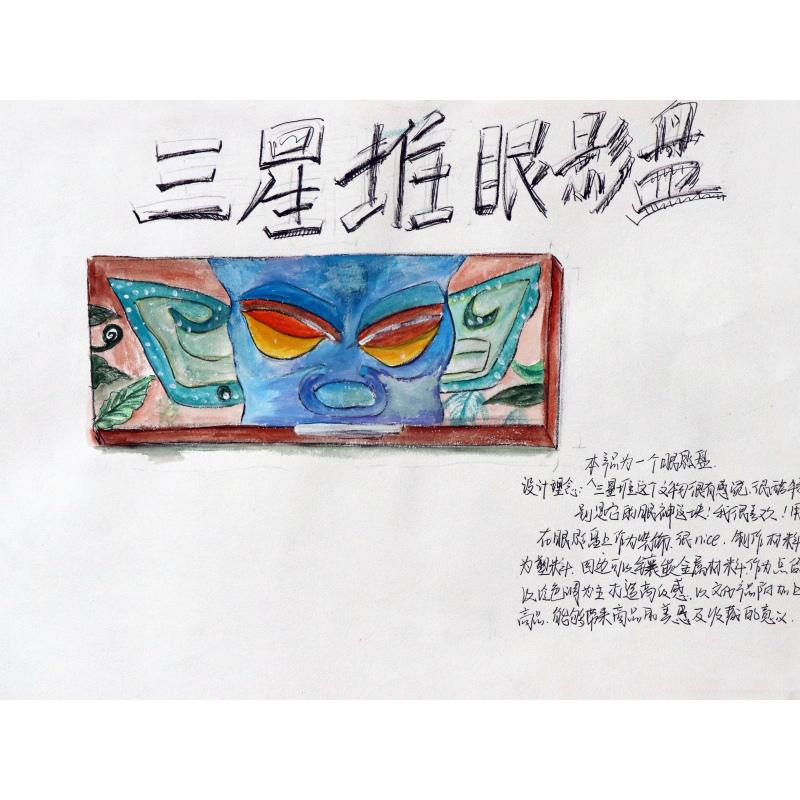 三星堆眼影盘
本品为一个眼影盘.
设计理念:"三星堆这个文物很有感觉.很酷
别是它的眼神这块!我很喜欢!用
在眼影盘上作为装饰.很nice.制作材料
为塑料.四边可以镶嵌金属材料作为点
以红色调为主打造高级感.以文物产品附加上
商品.能够带来商品的美感及收藏的意义.